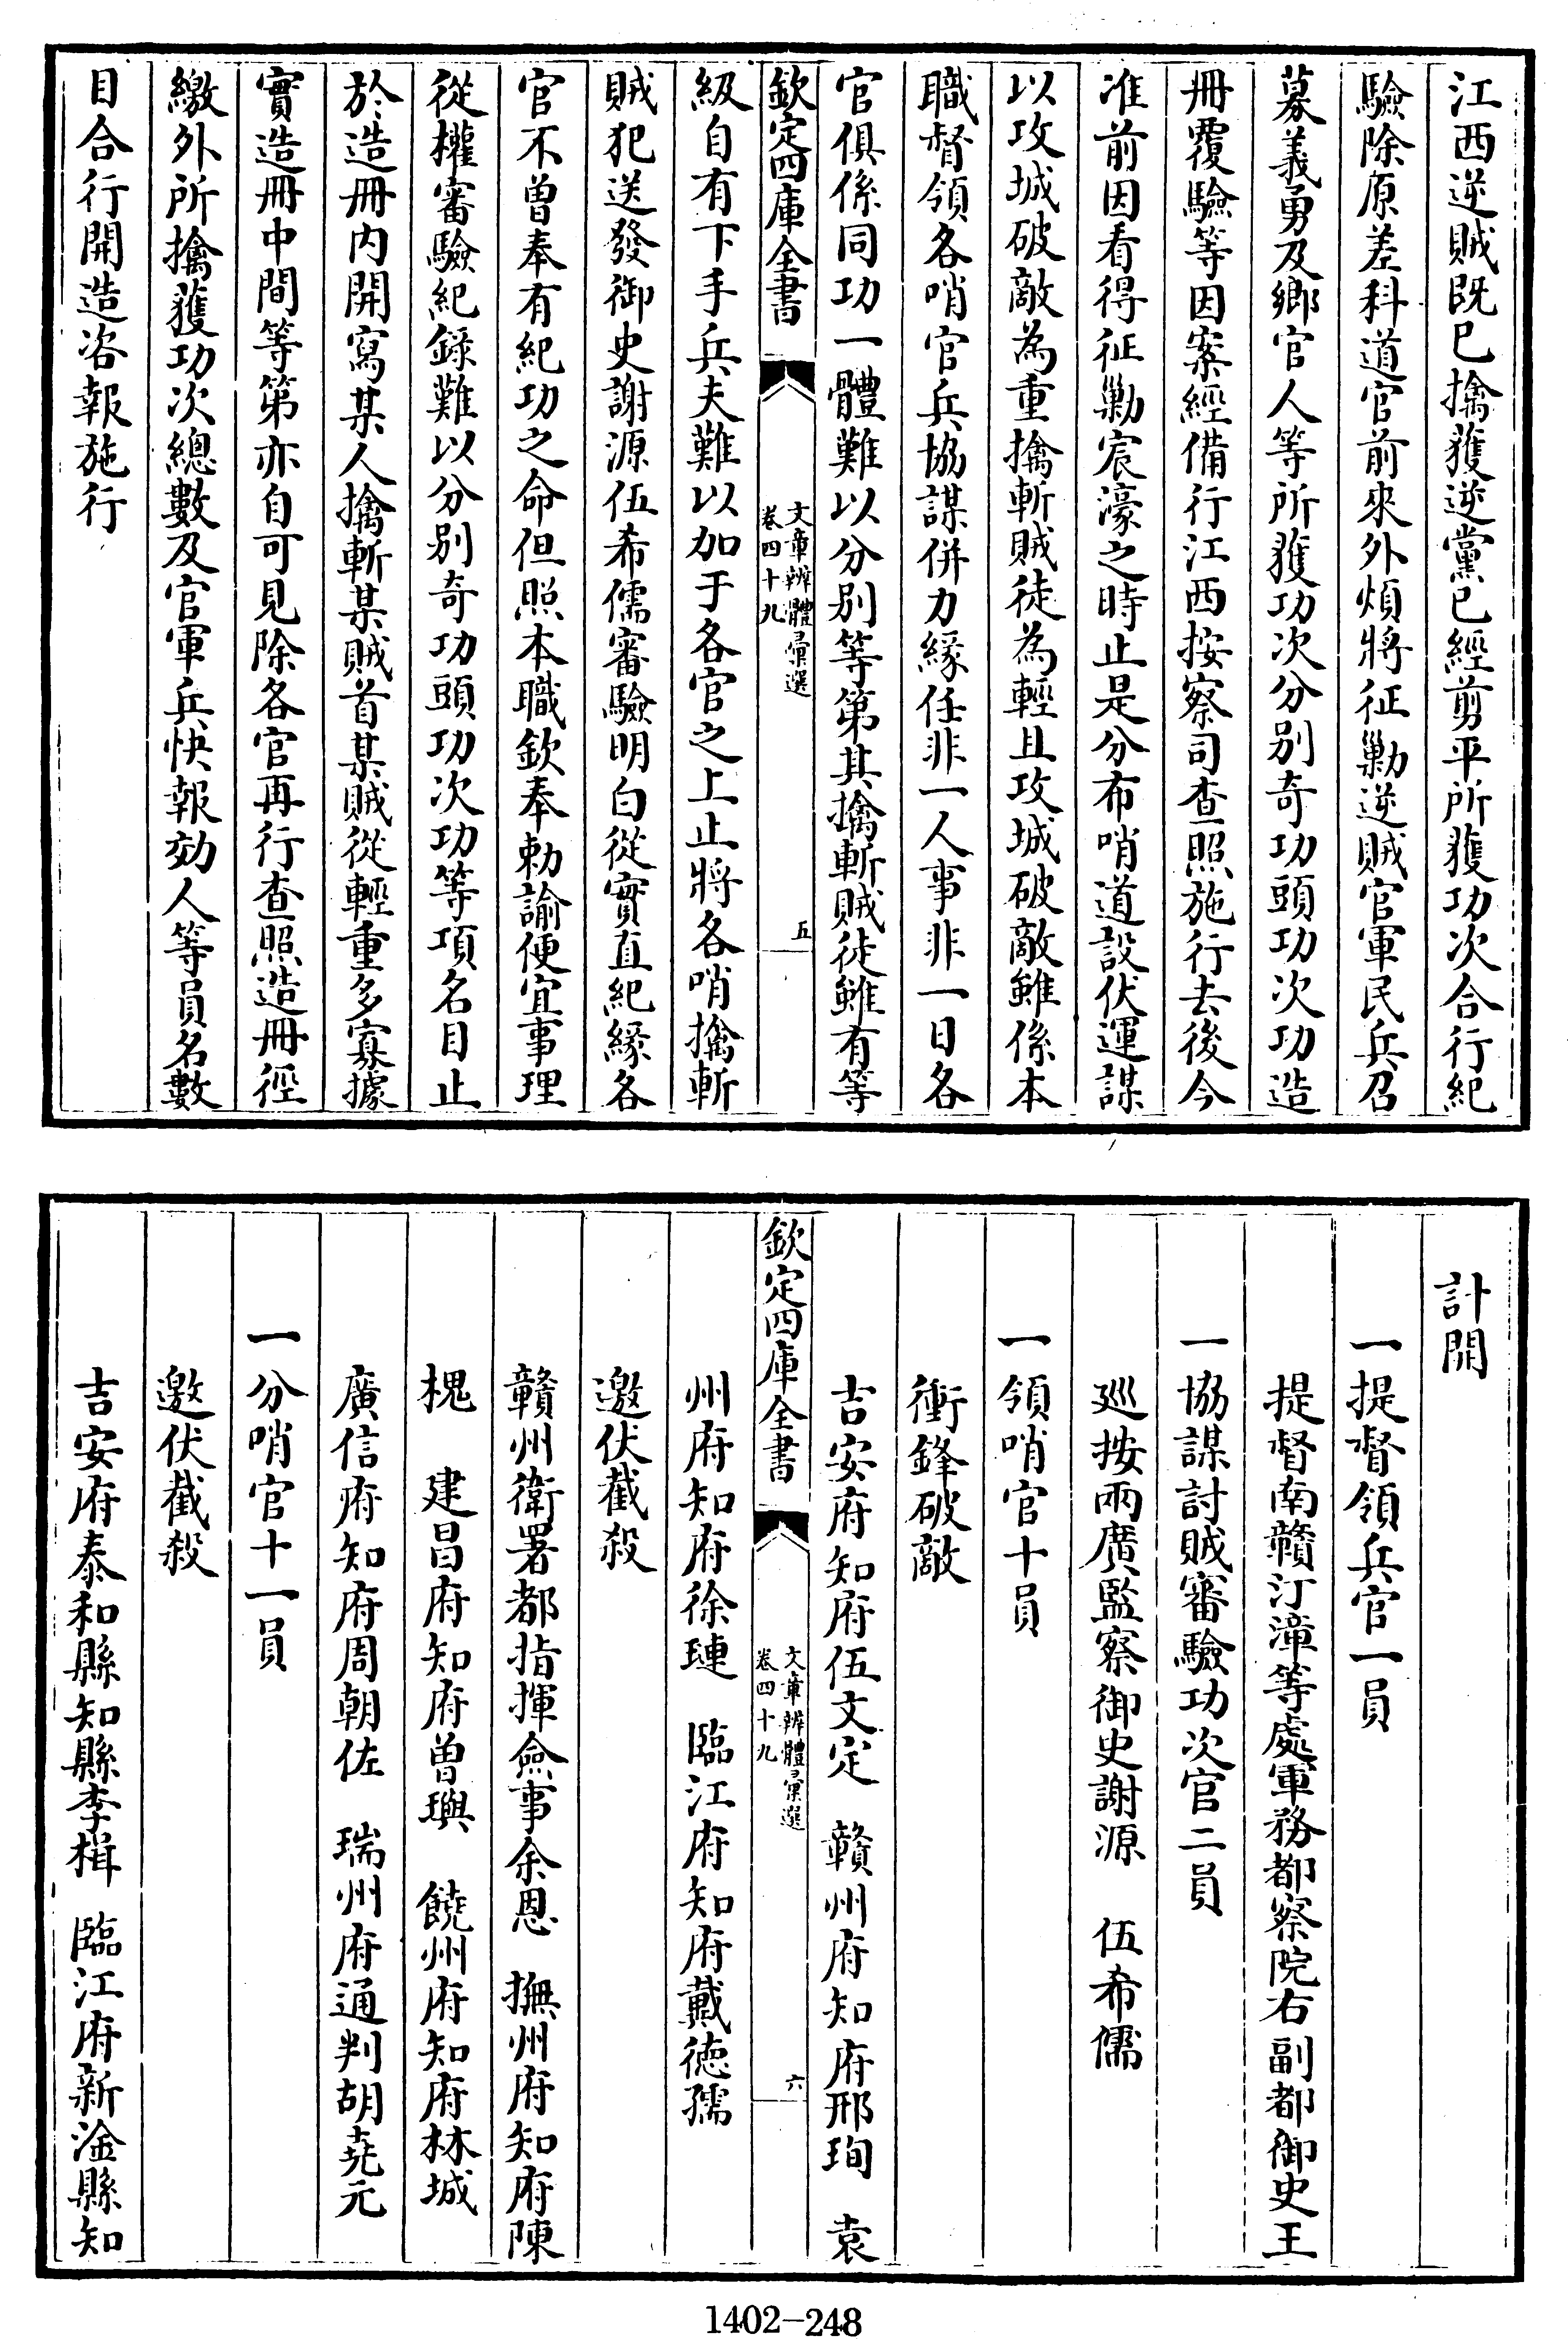 江西逆賊既已擒獲逆黨已經剪平所獲功次合行紀
驗除原差科道官前來外煩將征勦逆賊官軍民兵召
募義勇及鄉官人等所獲功次分別奇功頭功次功造
冊覆驗等因案經備行江西按察司查照施行去後今
准前因看得征勦宸濠之時止是分布哨道設伏運謀
以攻城破敵為重擒斬賊徒為輕且攻城破敵雖係本
職督領各哨官兵協謀併力緣任非一人事非一日各
官俱係同功一體難以分別等第其擒斬賊徒雖有等
欽定四庫全書
文章辨體彙選
卷四十九
五
級自有下手兵夫難以加于各官之上止將各哨擒斬
賊犯送發御史謝源伍希儒審驗明白從實直紀緣各
官不曾奉有紀功之命但照本職欽奉勅諭便宜事理
從權審驗紀錄難以分別奇功頭功次功等項名目止
於造冊內開寫某人擒斬某賊首某賊從輕重多寡據
實造冊中間等第亦自可見除各官再行查照造冊徑
繳外所擒獲功次總數及官軍兵快報効人等員名數
目合行開造咨報施行
計開
一提督領兵官一員
提督南贛汀漳等處軍務都察院右副都御史王
一協謀討賊審驗功次官二員
廵按兩廣監察御史謝源 伍希儒
一領哨官十員
衝鋒破敵
吉安府知府伍文定 贛州府知府邢珣 袁
欽定四庫全書
文章辨體彙選
卷四十九
六
州府知府徐璉 臨江府知府戴德孺
邀伏截殺
贛州衛署都指揮僉事余恩 撫州府知府陳
槐 建昌府知府曾璵 饒州府知府林城
廣信府知府周朝佐 瑞州府通判胡尭元
一分哨官十一員
邀伏截殺
吉安府泰和縣知縣李楫 臨江府新淦縣知
1402-248